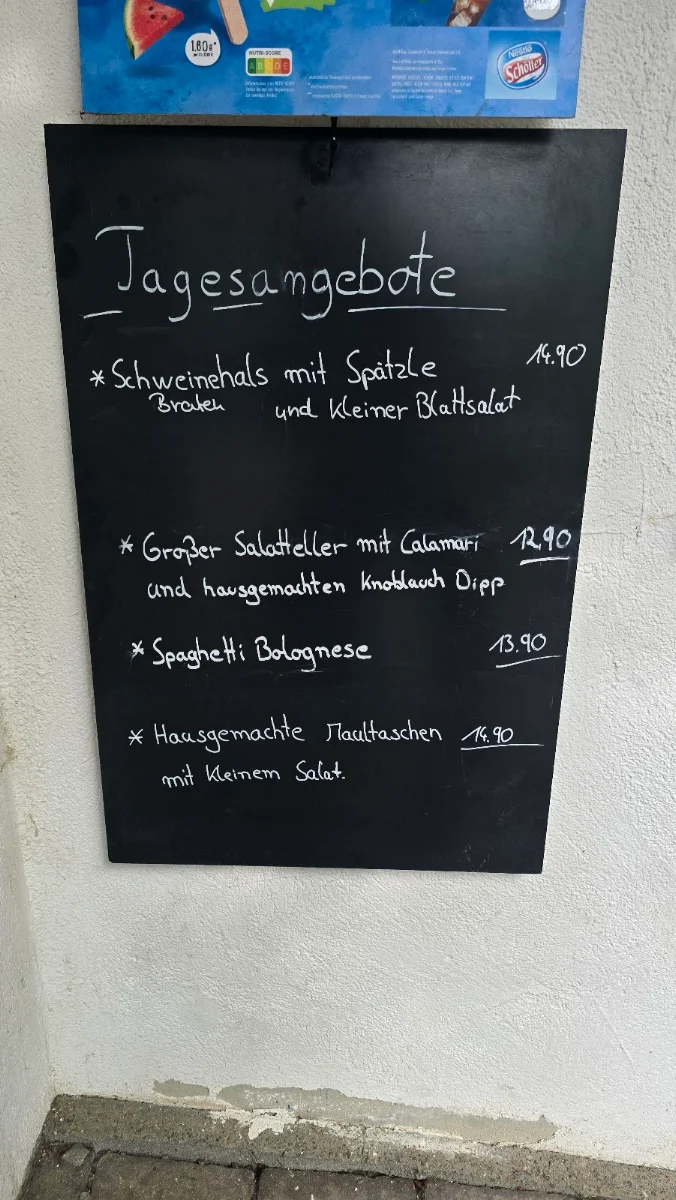 1.80€*
NUTRI-SCORE
Nestlé
Schöller
Tagesangebote
* Schweinehals mit Spätzle 14.90
Braten und kleiner Blattsalat
* Großer Salatteller mit Calamari 12,90
und hausgemachten Knoblauch Dipp
* Spaghetti Bolognese 13.90
* Hausgemachte Maultaschen 14.90
mit kleinem Salat.